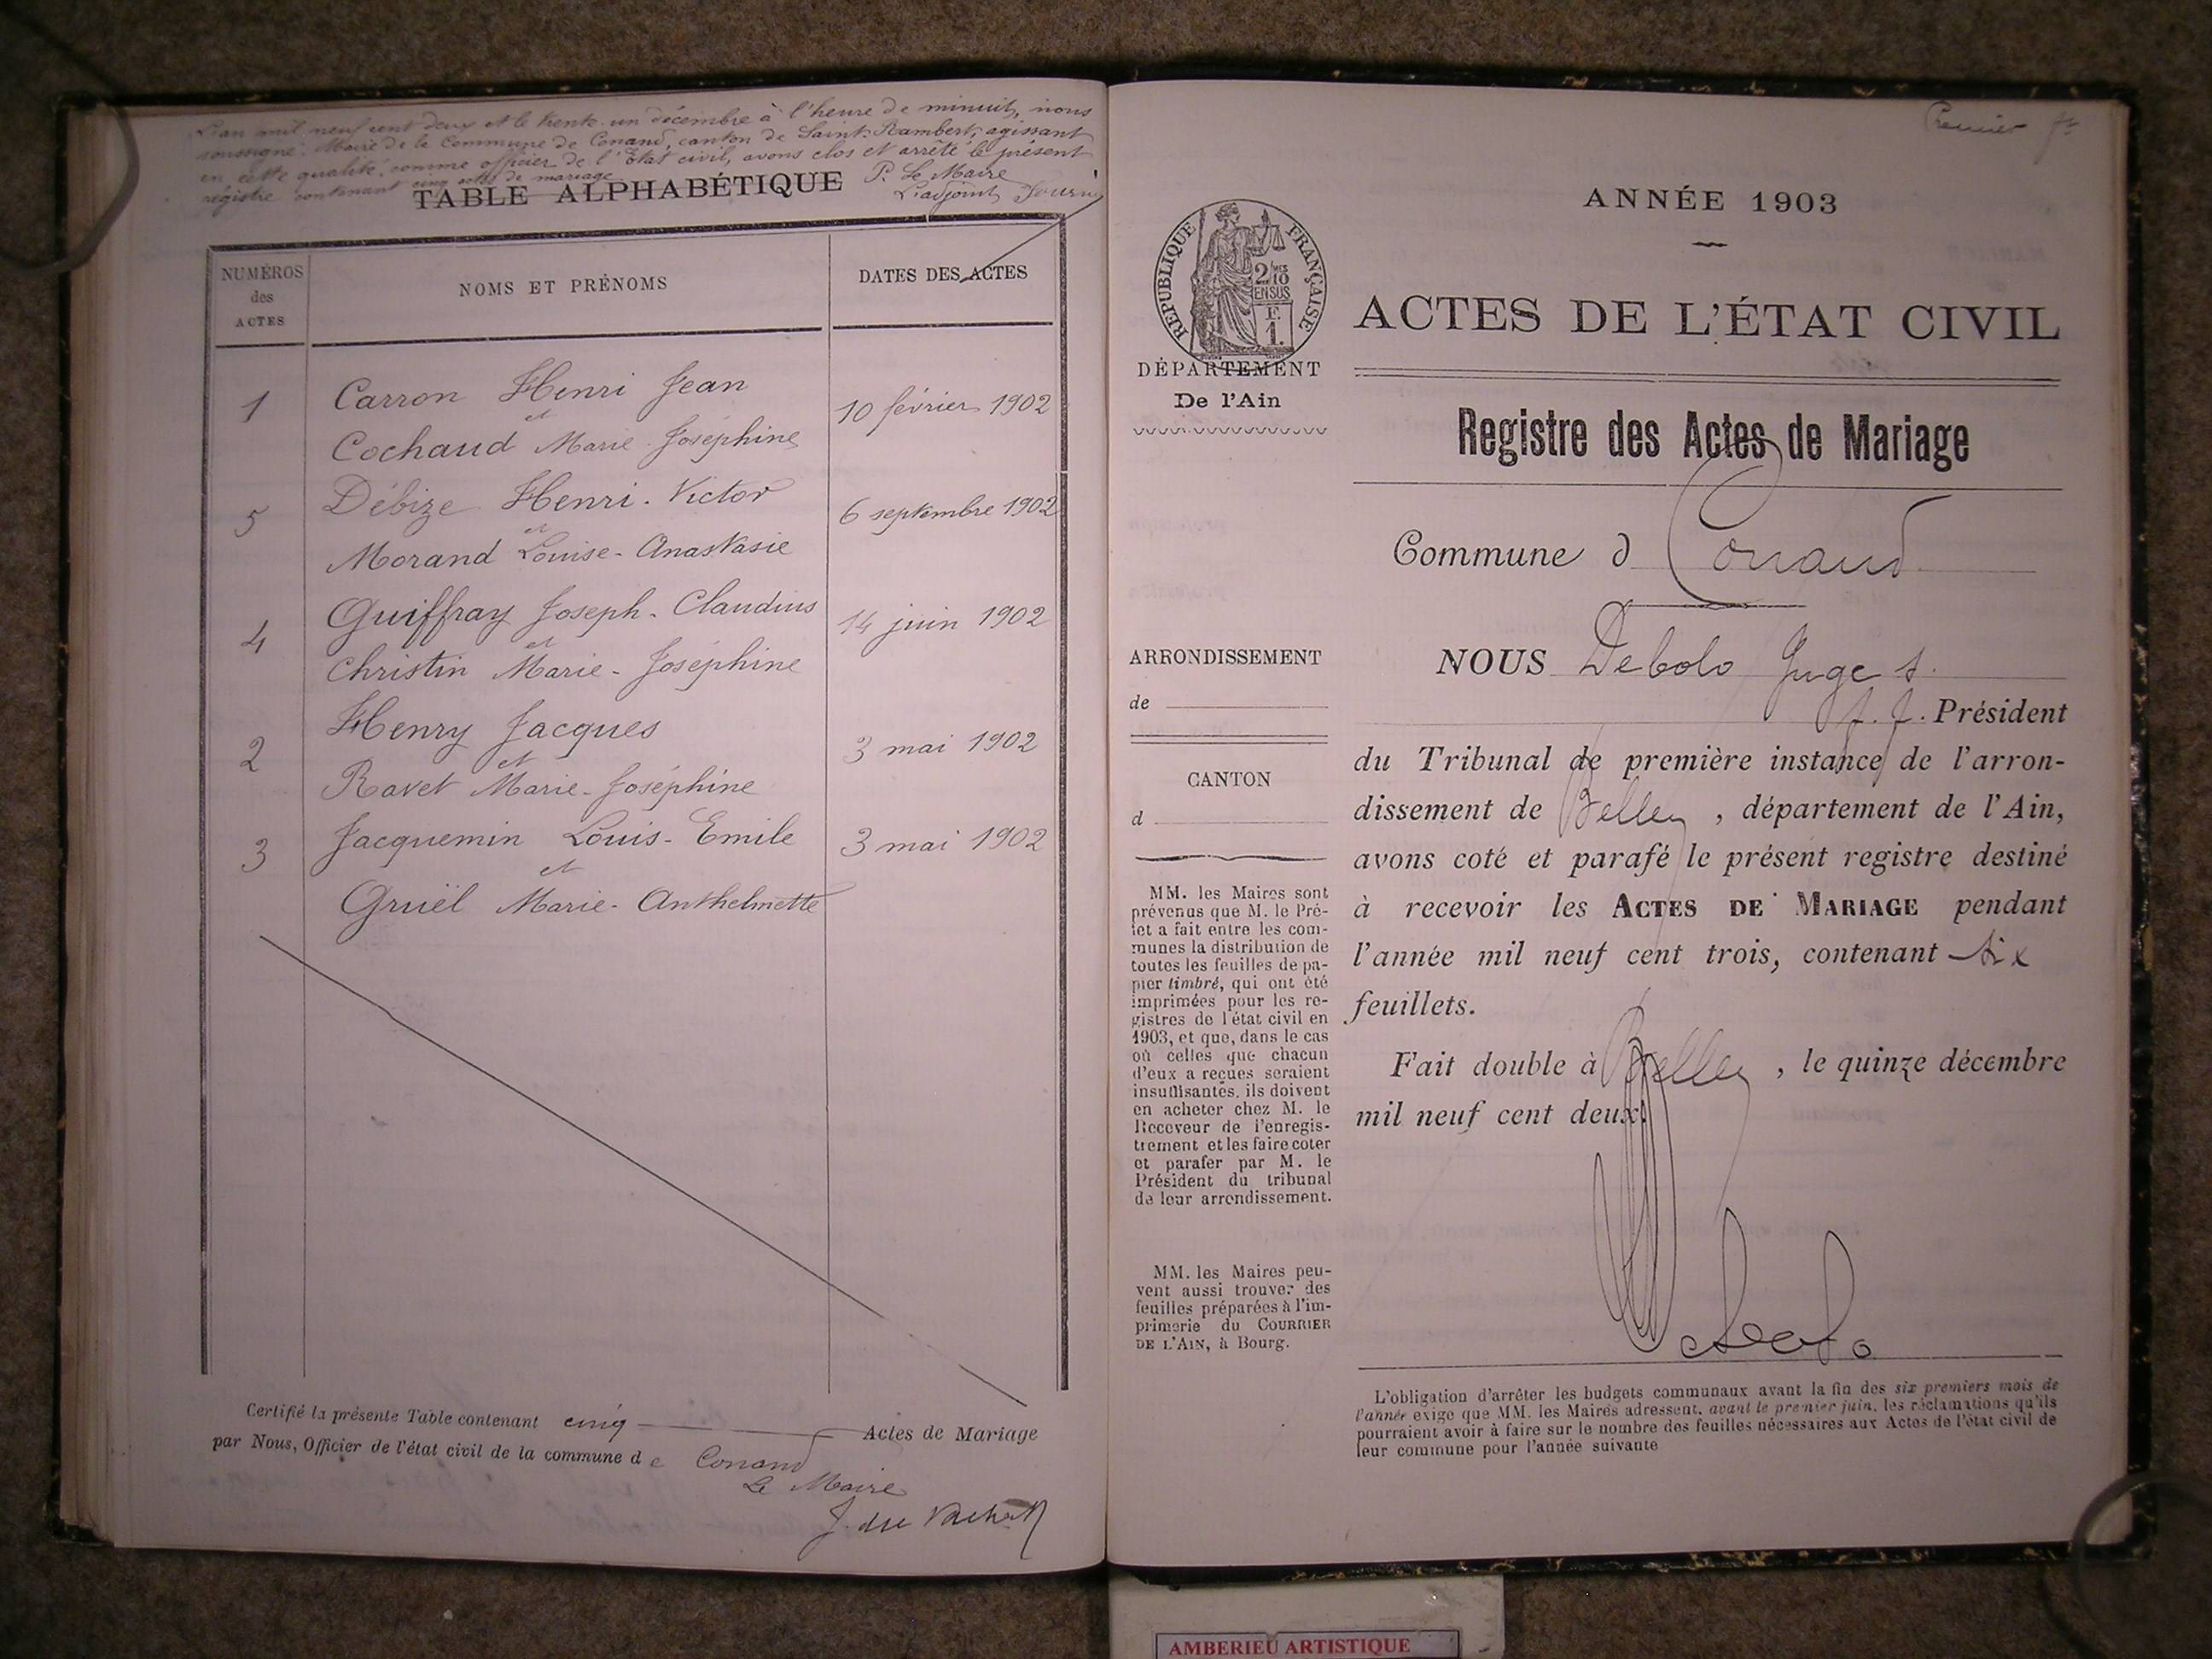 L'an mil neuf cent deux et le trente-un décembre à l'heure de minuit, nous
soussigné Maire de la Commune de Conand, canton de Saint-Rambert, agissant
en cette qualité, comme officier de l'Etat civil, avons clos et arrêté le présent
régistre contenant cinq actes de mariage
P. Le Maire
L'adjoint
TABLE ALPHABÉTIQUE
NUMÉROS
des
ACTES
NOMS ET PRÉNOMS
DATES DES ACTES
1
Carron Henri Jean
et
Cochaud Marie Joséphine
10 février 1902
5
Débize Henri-Victor
et
Morand Louise-Anastasie
6 septembre 1902
4
Guiffray Joseph-Claudius
et
Christin Marie-Joséphine
14 juin 1902
2
Henry Jacques
et
Ravet Marie-Joséphine
3 mai 1902
3
Jacquemin Louis-Emile
et
Gruël Marie-Anthelmette
3 mai 1902
Certifié la présente Table contenant cinq Actes de Mariage
par Nous, Officier de l'état civil de la commune de Conand
Le Maire
J. du Vachat
Premier
ANNÉE 1903
RÉPUBLIQUE FRANÇAISE
2/10
EN SUS
F.
1.
DÉPARTEMENT
De l'Ain
ARRONDISSEMENT
de
CANTON
d
MM. les Maires sont
prévenus que M. le Pré-
fet a fait entre les com-
munes la distribution de
toutes les feuilles de pa-
pier timbré, qui ont été
imprimées pour les re-
gistres de l'état civil en
1903, et que, dans le cas
où celles que chacun
d'eux a reçues seraient
insuffisantes, ils doivent
en acheter chez M. le
Receveur de l'enregis-
trement et les faire coter
et parafer par M. le
Président du tribunal
de leur arrondissement.
MM. les Maires peu-
vent aussi trouver des
feuilles préparées à l'im-
primerie du COURRIER
DE L'AIN, à Bourg.
ACTES DE L'ÉTAT CIVIL
Registre des Actes de Mariage
Commune d Conand
NOUS Debolo Juge s.
f. f. Président
du Tribunal de première instance de l'arron-
dissement de Belley, département de l'Ain,
avons coté et parafé le présent registre destiné
à recevoir les ACTES DE MARIAGE pendant
l'année mil neuf cent trois, contenant six
feuillets.
Fait double à Belley, le quinze décembre
mil neuf cent deux.
Debolo
L'obligation d'arrêter les budgets communaux avant la fin des six premiers mois de
l'année exige que MM. les Maires adressent, avant le premier juin, les réclamations qu'ils
pourraient avoir à faire sur le nombre des feuilles nécessaires aux Actes de l'état civil de
leur commune pour l'année suivante
AMBERIEU ARTISTIQUE